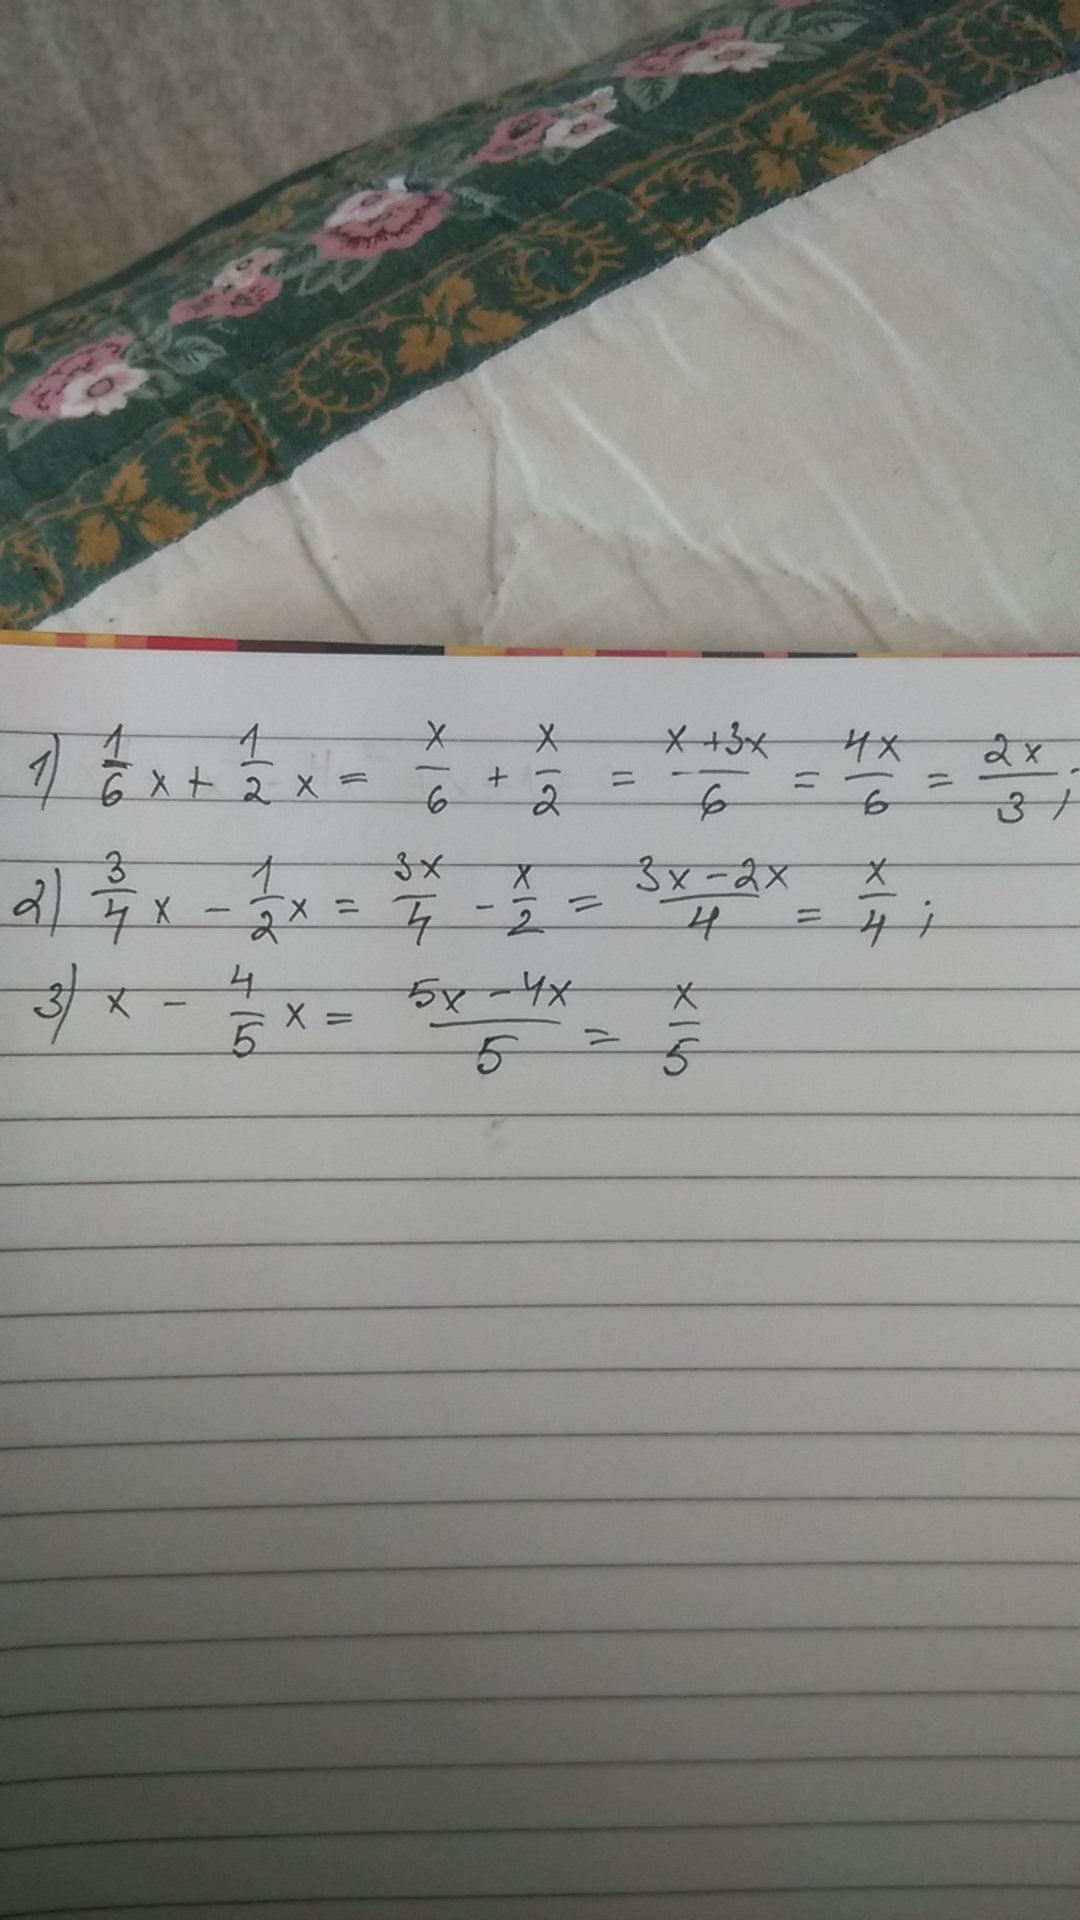 1) 1/6 x + 1/2 x = x/6 + x/2 = x+3x/6 = 4x/6 = 2x/3;
2) 3/4 x - 1/2 x = 3x/4 - x/2 = 3x-2x/4 = x/4;
3) x - 4/5 x = 5x-4x/5 = x/5